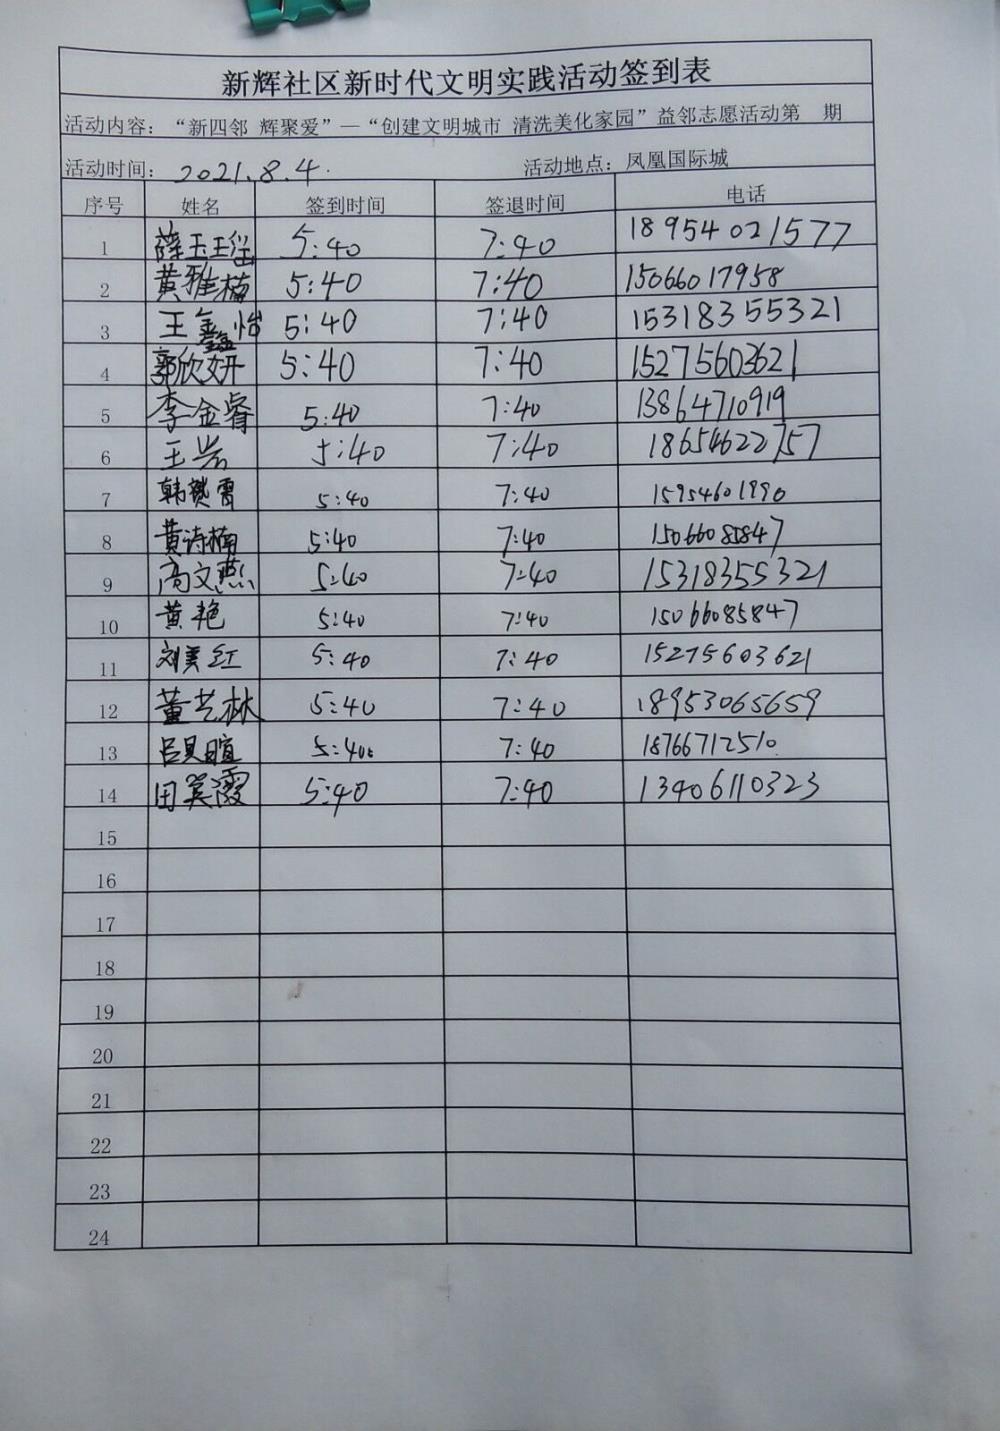 新辉社区新时代文明实践活动签到表
活动内容：“新四邻 辉聚爱”—“创建文明城市 清洗美化家园”益邻志愿活动第 期
活动时间：2021.8.4. 活动地点：凤凰国际城
序号 姓名 签到时间 签退时间 电话
1 薛玉瑶 5:40 7:40 18954021577
2 黄雅楠 5:40 7:40 15066017958
3 王鑫怡 5:40 7:40 15318355321
4 郭欣妍 5:40 7:40 15275603621
5 李金睿 5:40 7:40 13864710919
6 王岩 5:40 7:40 18654622757
7 韩赟霄 5:40 7:40 15954601990
8 黄诗楠 5:40 7:40 15066085847
9 高文燕 5:40 7:40 15318355321
10 黄艳 5:40 7:40 15066085847
11 刘美红 5:40 7:40 15275603621
12 董艺林 5:40 7:40 18953065659
13 吕昊暄 5:40 7:40 18766712510
14 田英霞 5:40 7:40 13406110323
15
16
17
18
19
20
21
22
23
24